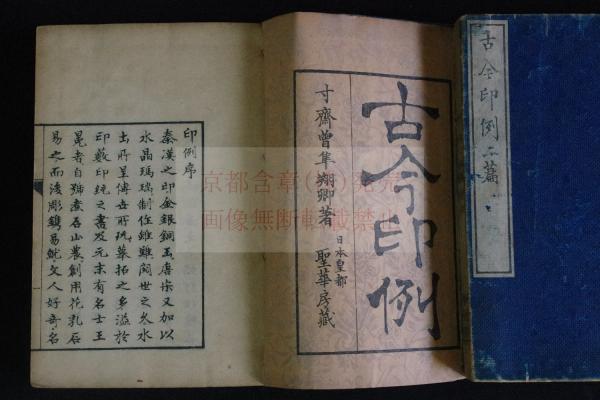 古今印例二篇
古今印例
寸齋曾隼翔卿著
日本皇都
聖華房藏
印例序
秦漢之印金銀銅玉唐宋又加以
水晶瑪瑙制作雖雖閱世之久水
出所呈傳世所玩摹拓之多溢於
印數印統之書及元末有名士王
冕者自號煮石山農創用花乳石
易之而後彫鐫易就文人好奇名
京都含章(株)発売
画像無断転載禁止